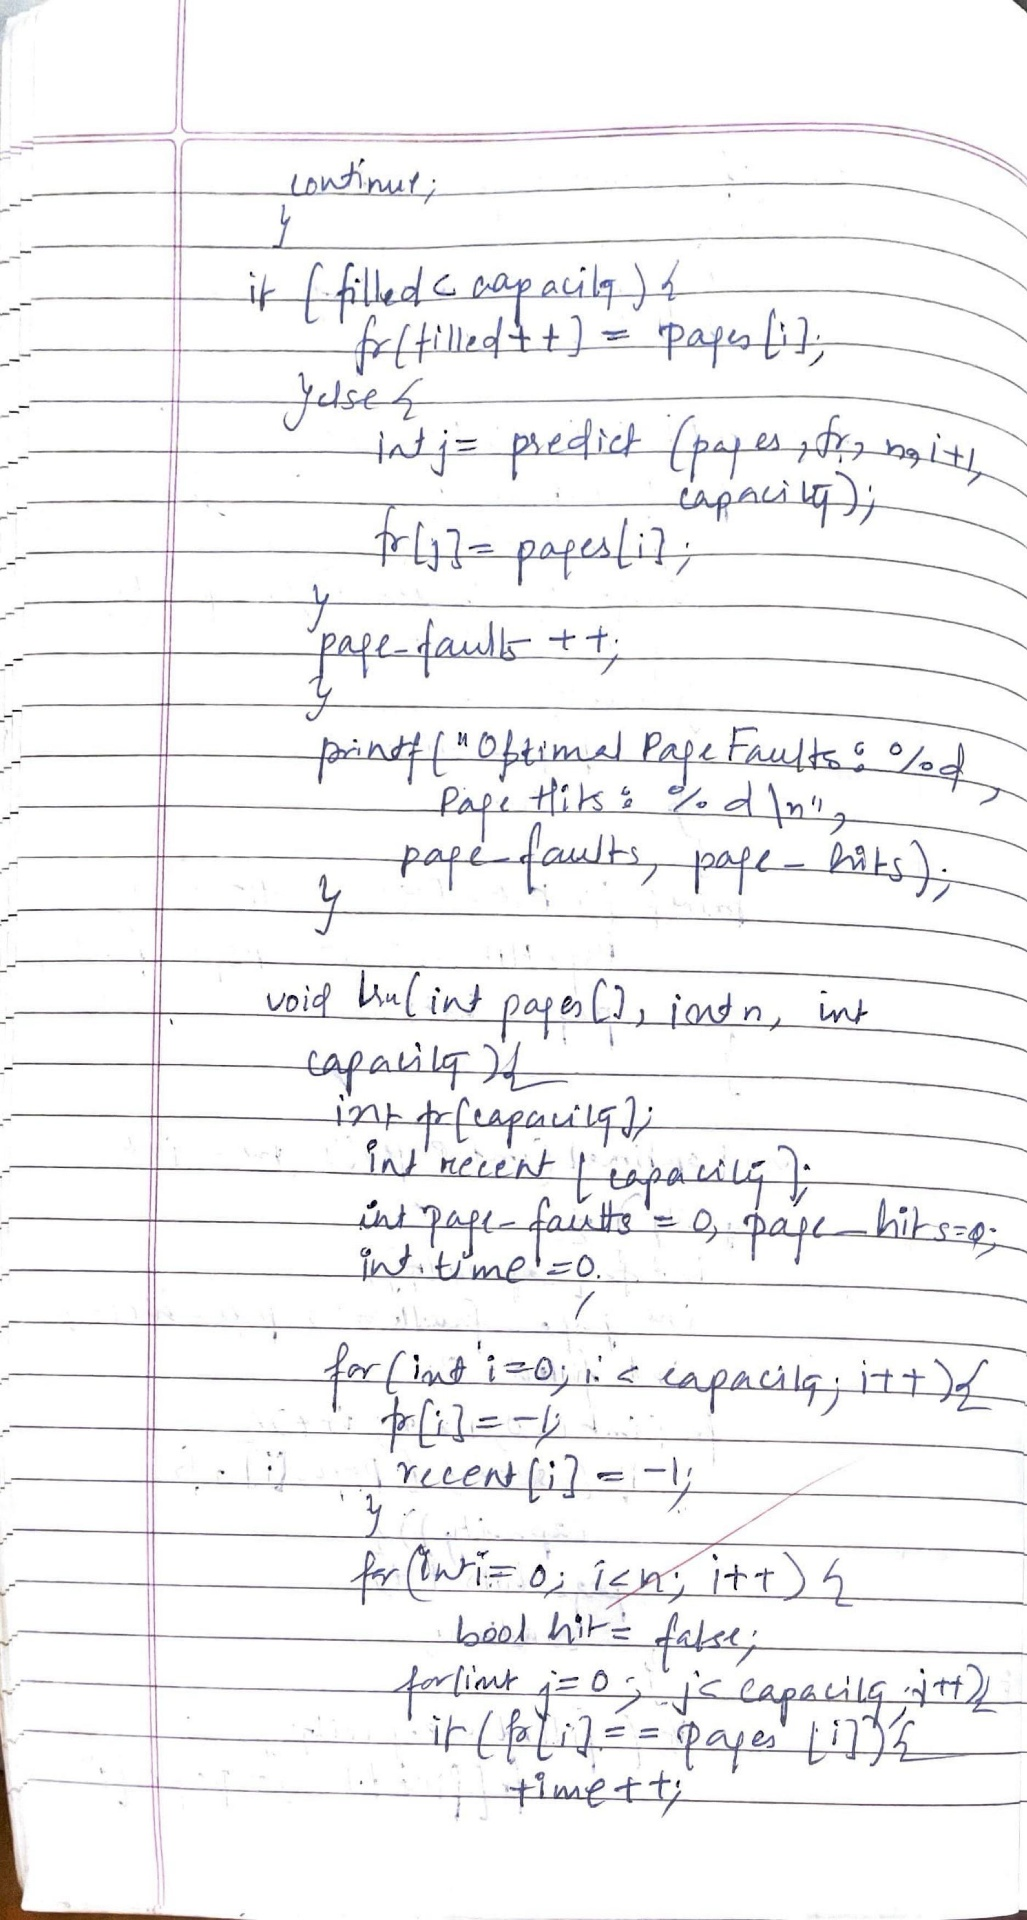 continue;
}
if (filled < capacity) {
fr[filled++] = pages[i];
} else {
int j = predict (pages, fr, n, i+1,
capacity);
fr[j] = pages[i];
}
page_faults ++;
}
printf ("Optimal Page Faults: %d,
Page Hits: %d \n",
page_faults, page_hits);
}
void lru(int pages[], int n, int
capacity) {
int fr[capacity];
int recent [capacity];
int page_faults = 0, page_hits=0;
int time = 0;
for (int i=0; i < capacity; i++) {
fr[i] = -1;
recent [i] = -1;
}
for (int i = 0; i<n; i++) {
bool hit = false;
for(int j=0; j< capacity; j++){
if (fr[i] == pages [i]) {
time ++;